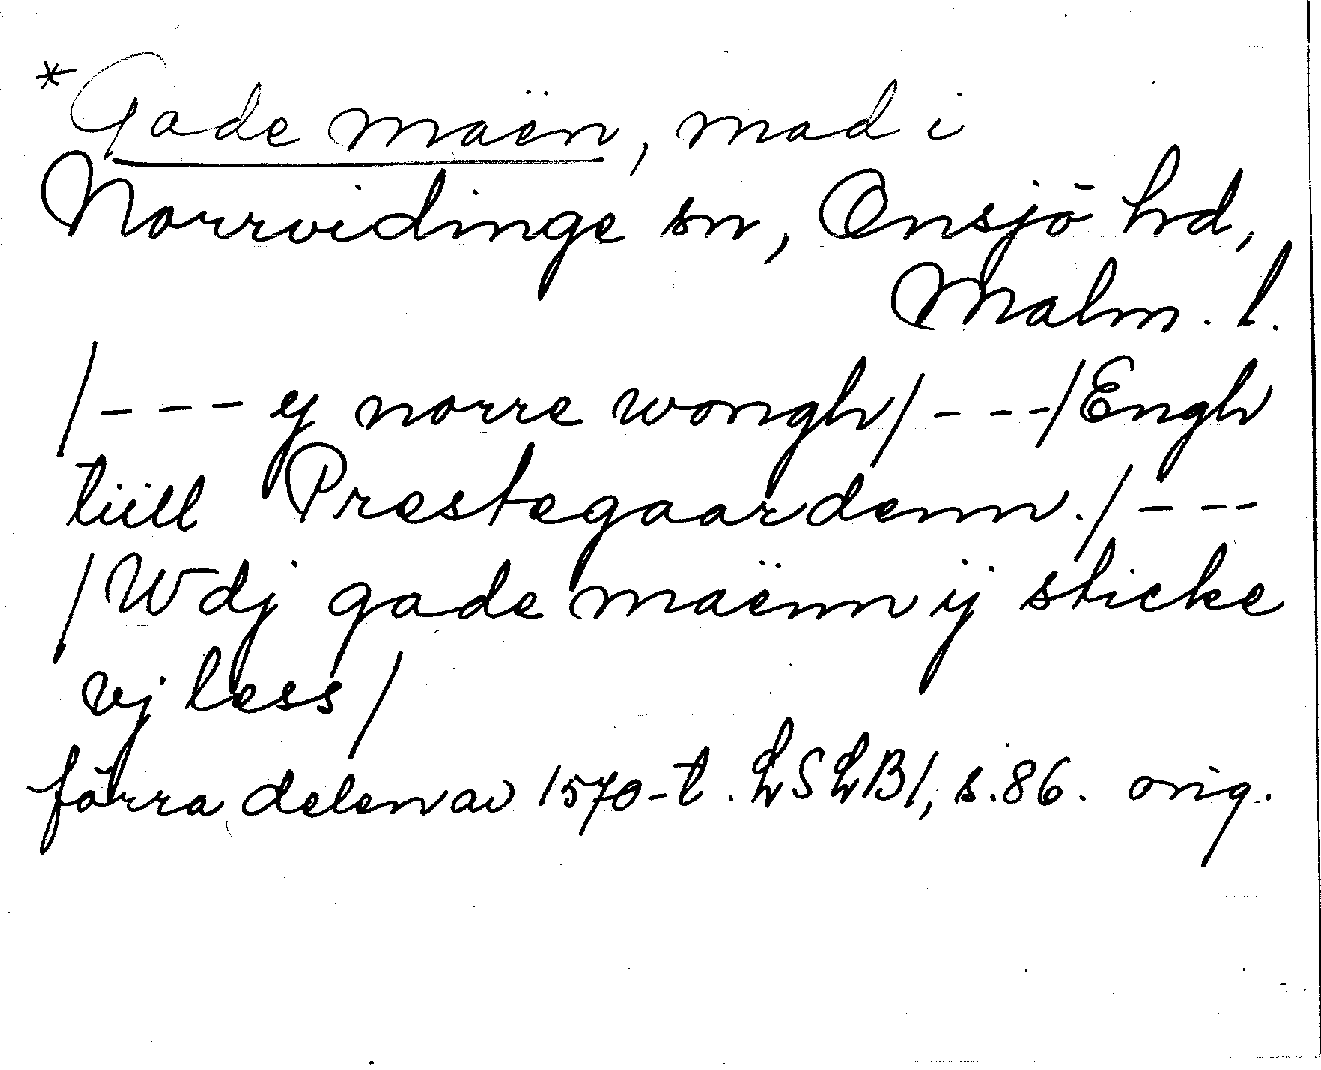 *Gade maën, mad i
Norrvidinge sn, Onsjö hd,
Malm. l.
/- - - y norre wongh/- - -/Engh
tiill Prestegaardenn./- - -
/Wdj gade maënn ij sticke
vj less/
förra delen av 1570-t. LSLB1, s.86. orig.